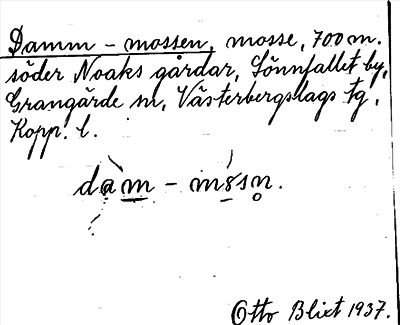 Damm - mossen, mosse, 700 m.
söder Noaks gårdar, Sönnfallet by,
Grangärde sn, Västerbergslags tg,
Kopp. l.
dam - m8sn.
Otto Blixt 1937.